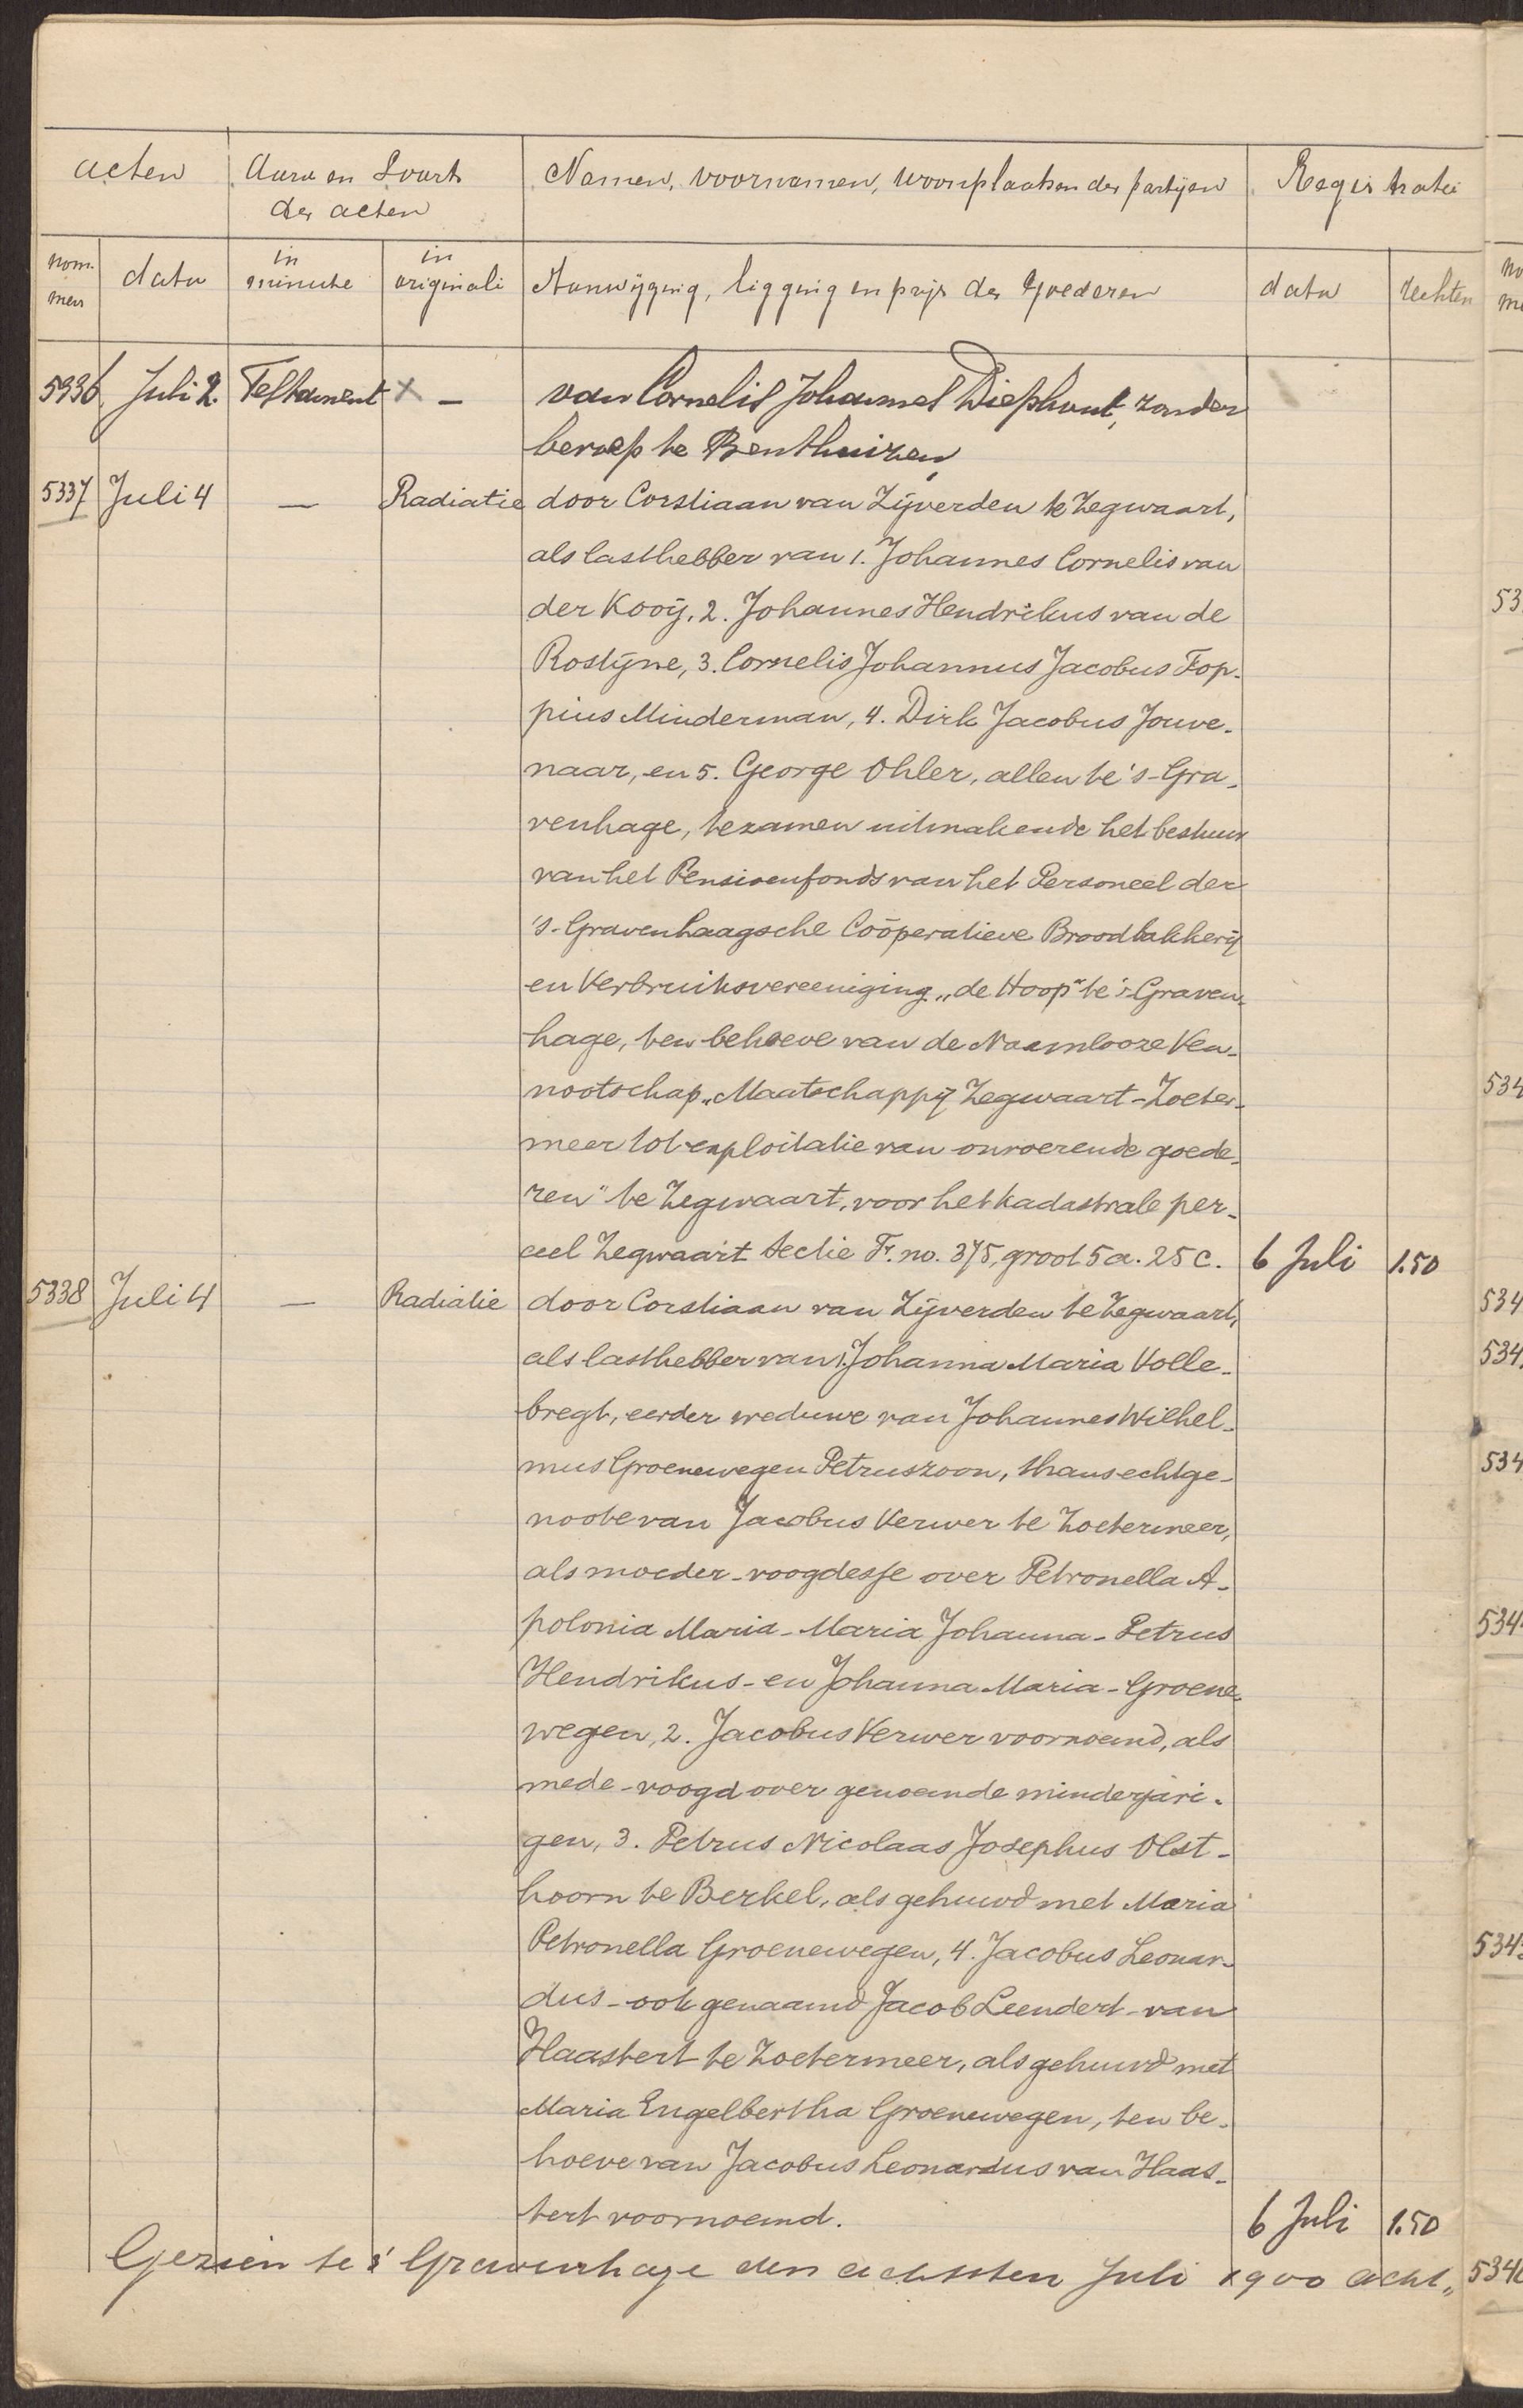 acten Aard en Soort Namen, voornamen, woonplaatsen der partijen Registratie
der acten
nom- data in in Aanwijzing, ligging en prijs der Goederen data rechten
mers minute originali
5336 Juli 2. Testament X — van Cornelis Johannes Diephout, zonder
beroep te Benthuizen
5337 Juli 4 — Radiatie door Corstiaan van Zijverden te Zegwaart,
als lasthebber van 1. Johannes Cornelis van
der Kooij, 2. Johannes Hendrikus van de
Rostyne, 3. Cornelis Johannus Jacobus Fop-
pius Minderman, 4. Dirk Jacobus Jouve-
naar, en 5. George Ohler, allen te 's-Gra-
venhage, tezamen uitmakende het bestuur
van het Pensioenfonds van het Personeel der
's-Gravenhaagsche Coöperatieve Broodbakkerij
en Verbruiksvereeniging „de Hoop" te 's-Graven-
hage, ten behoeve van de Naamlooze Ven-
nootschap „Maatschappij Zegwaart-Zoeter-
meer tot exploitatie van onroerende goede-
ren" te Zegwaart, voor het kadastrale per-
ceel Zegwaart sectie F. no. 375, groot 5 a. 25 c. 6 Juli 1.50
5338 Juli 4 — Radiatie door Corstiaan van Zijverden te Zegwaart,
als lasthebber van 1. Johanna Maria Volle-
bregt, eerder weduwe van Johannes Wilhel-
mus Groenewegen Petruszoon, thans echtge-
noote van Jacobus Verwer te Zoetermeer,
als moeder-voogdesse over Petronella A-
polonia Maria - Maria Johanna - Petrus
Hendrikus - en Johanna Maria - Groene-
wegen, 2. Jacobus Verwer voornoemd, als
mede-voogd over genoemde minderjari-
gen, 3. Petrus Nicolaas Josephus Olst-
hoorn te Berkel, als gehuwd met Maria
Petronella Groenewegen, 4. Jacobus Leonar-
dus - ook genaamd Jacob Leendert - van
Haastert te Zoetermeer, als gehuwd met
Maria Engelbertha Groenewegen, ten be-
hoeve van Jacobus Leonardus van Haas-
tert voornoemd. 6 Juli 1.50
Gezien te 's Gravenhage den achtsten Juli 1900 acht„